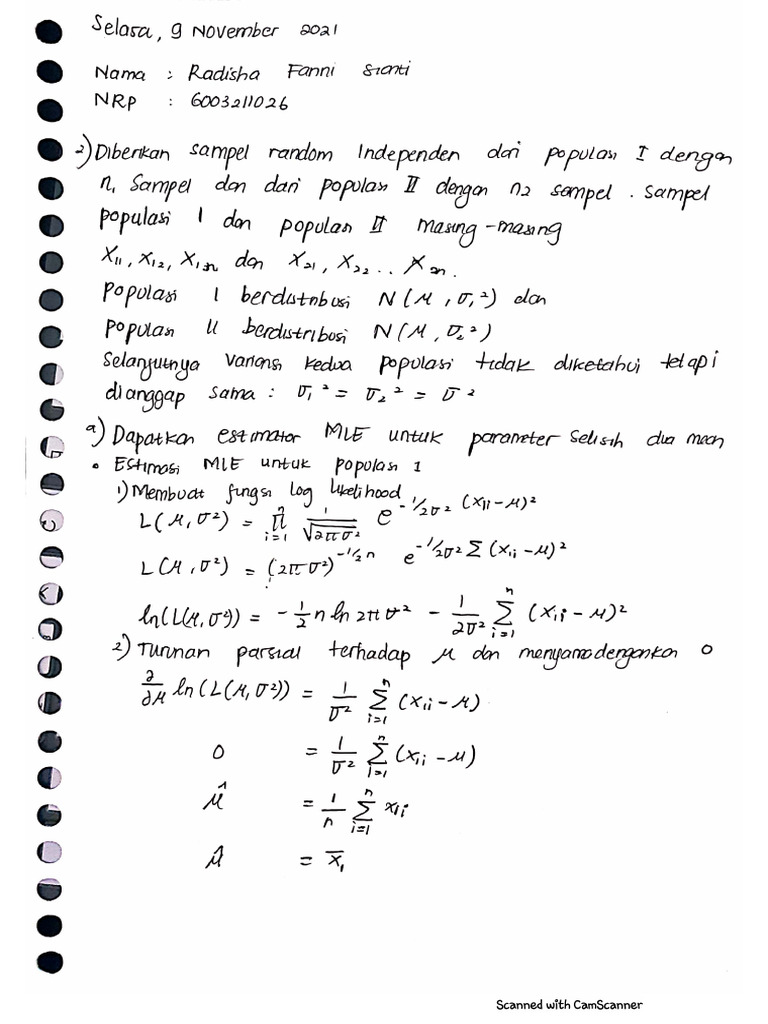 Selasa, 9 November 2021
Nama : Radisha Fanni Sianti
NRP : 6003211026
2) Diberikan sampel random Independen dari populasi I dengan
n₁ Sampel dan dari populasi II dengan n₂ sampel. sampel
populasi I dan populasi II masing-masing
X₁₁, X₁₂, X₁ₙ dan X₂₁, X₂₂ .. X₂ₙ.
populasi I berdistribusi N(μ, σ₁²) dan
populasi II berdistribusi N(μ, σ₂²)
Selanjutnya variansi kedua populasi tidak diketahui tetapi
dianggap sama : σ₁² = σ₂² = σ²
a) Dapatkan estimator MLE untuk parameter selisih dua mean
• Estimasi MLE untuk populasi 1
1) Membuat fungsi log likelihood
L(μ, σ²) = ∏ⁿᵢ₌₁ 1/√(2πσ²) e^(-1/2σ² (x₁ᵢ-μ)²)
L(μ, σ²) = (2πσ²)^(-1/2 n) e^(-1/2σ² Σ(x₁ᵢ-μ)²)
ln(L(μ, σ²)) = -1/2 n ln 2πσ² - 1/(2σ²) Σⁿᵢ₌₁ (x₁ᵢ - μ)²
2) Turunan parsial terhadap μ dan menyamadengankan 0
∂/∂μ ln(L(μ, σ²)) = 1/σ² Σⁿᵢ₌₁ (x₁ᵢ - μ)
0 = 1/σ² Σⁿᵢ₌₁ (x₁ᵢ - μ)
μ̂ = 1/n Σⁿᵢ₌₁ x₁ᵢ
μ̂ = x̄₁
Scanned with CamScanner